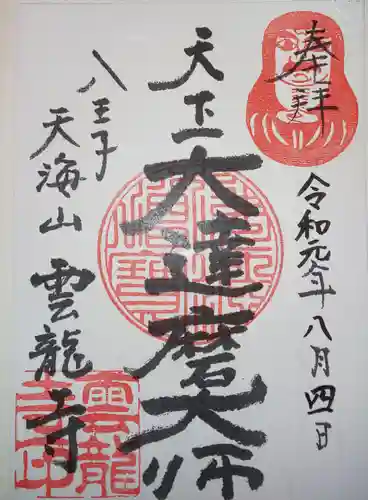 奉拝
令和元年八月四日
天下一大達磨大師
八王子
天海山雲龍寺
雲龍寺印